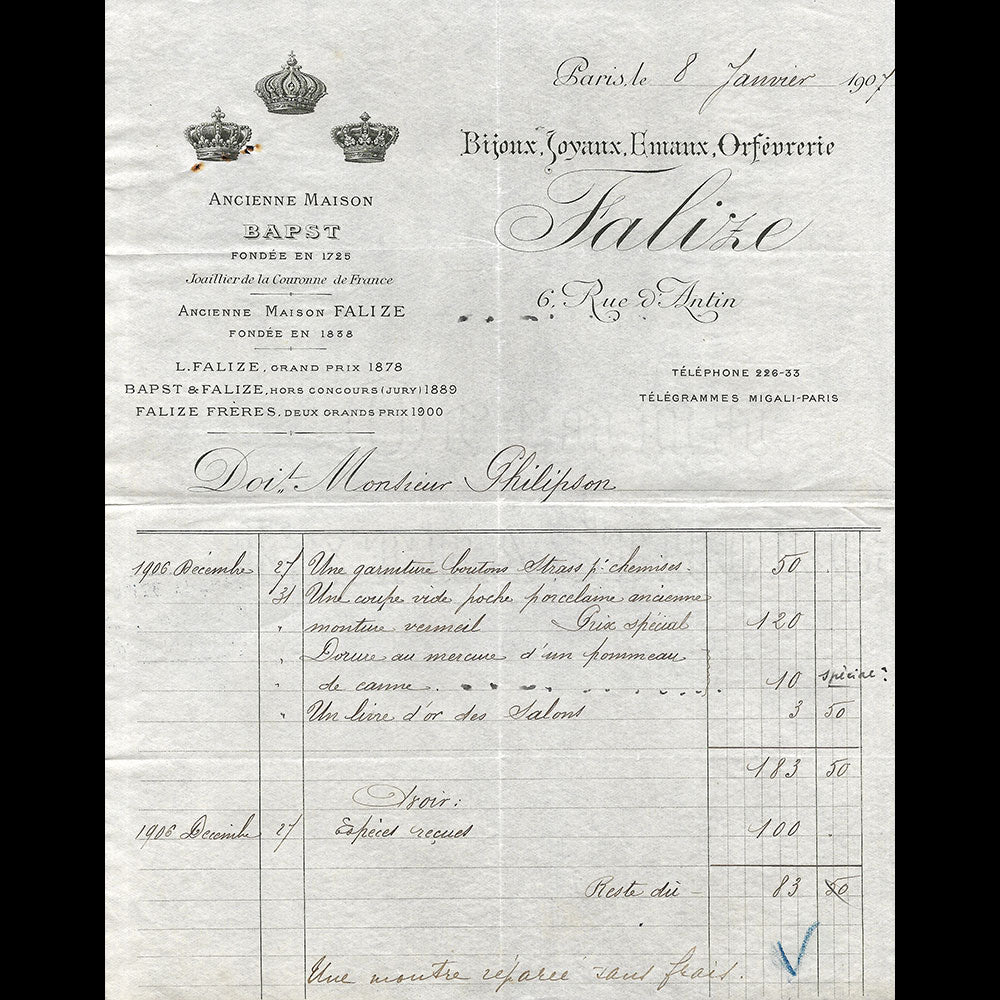 Paris, le 8 Janvier 1907
Bijoux, Joyaux, Emaux, Orfévrerie
Falize
6, Rue d'Antin
TÉLÉPHONE 226-33
TÉLÉGRAMMES MIGALI-PARIS
ANCIENNE MAISON
BAPST
FONDÉE EN 1725
Joaillier de la Couronne de France
ANCIENNE MAISON FALIZE
FONDÉE EN 1838
L. FALIZE, GRAND PRIX 1878
BAPST & FALIZE, HORS CONCOURS (JURY) 1889
FALIZE FRÈRES, DEUX GRANDS PRIX 1900
Doit Monsieur Philipson
1906 Décembre 27 Une garniture boutons Strass pr chemises. 50
31 Une coupe vide poche porcelaine ancienne
" monture vermeil Prix spécial 120
" Dorure au mercure d'un pommeau
" de canne. 10 spécial?
" Un livre d'or des Salons 3 50
183 50
Avoir:
1906 Décembre 27 Espèces reçues 100
Reste dû - 83 50
Une montre réparée sans frais.